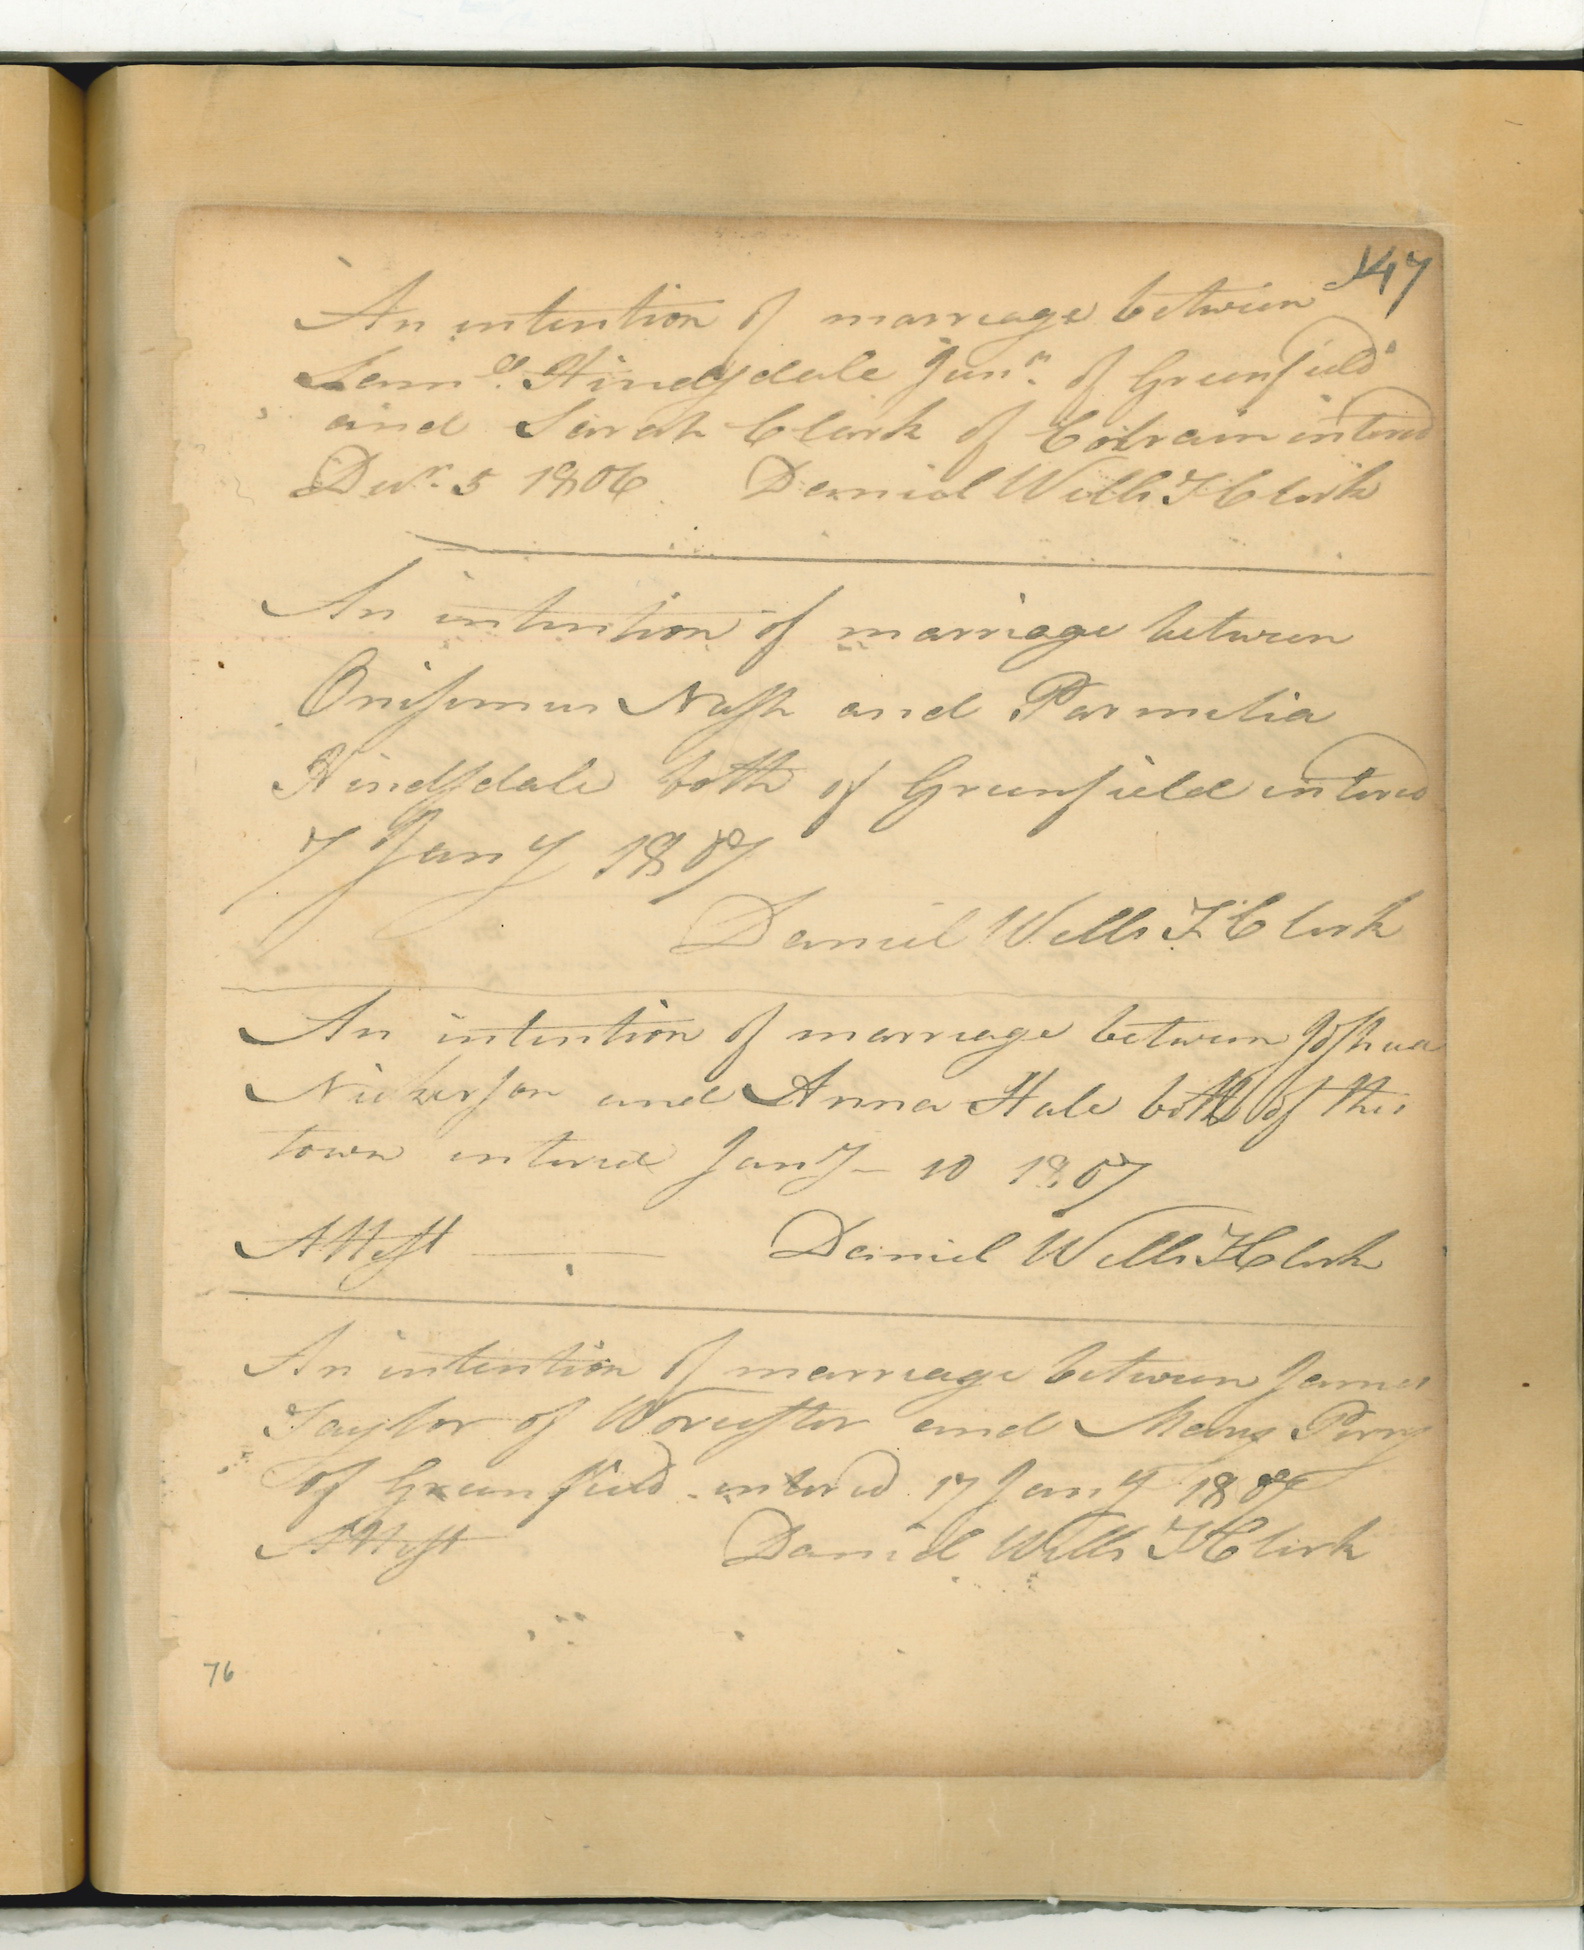 147
An intention of marriage between
Saml. Hindsdale Junr. of Greenfield
and Sarah Clark of Colrain entered
Decr. 5 1806 Daniel Wells T Clerk
An intention of marriage between
Onisimus Nash and Parmelia
Hindsdale both of Greenfield entered
7 Jany 1807
Daniel Wells T Clerk
An intention of marriage between Joshua
Nickerson and Anna Hale both of this
town entered Jany - 10 1807
Attest Daniel Wells T Clerk
An intention of marriage between James
Taylor of Worcester and Mary Perry
of Greenfield entered 17 Jany 1807
Attest Daniel Wells T Clerk
76